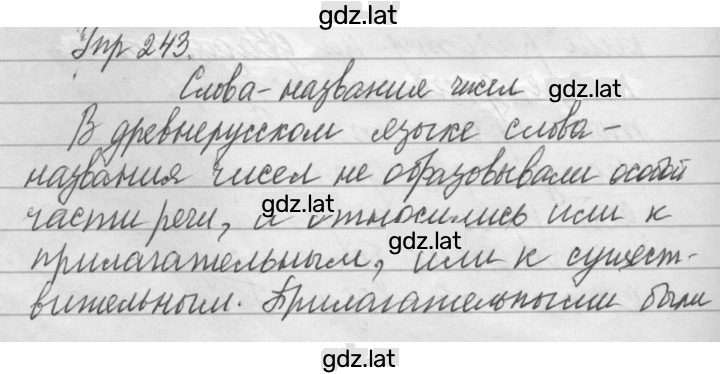 gdz.lat
Упр 243.
Слова-названия чисел
gdz.lat
В древнерусском языке слова-
названия чисел не образовывали особой
gdz.lat
части речи, а относились или к
gdz.lat
прилагательным, или к сущест-
вительным. Прилагательными были
gdz.lat